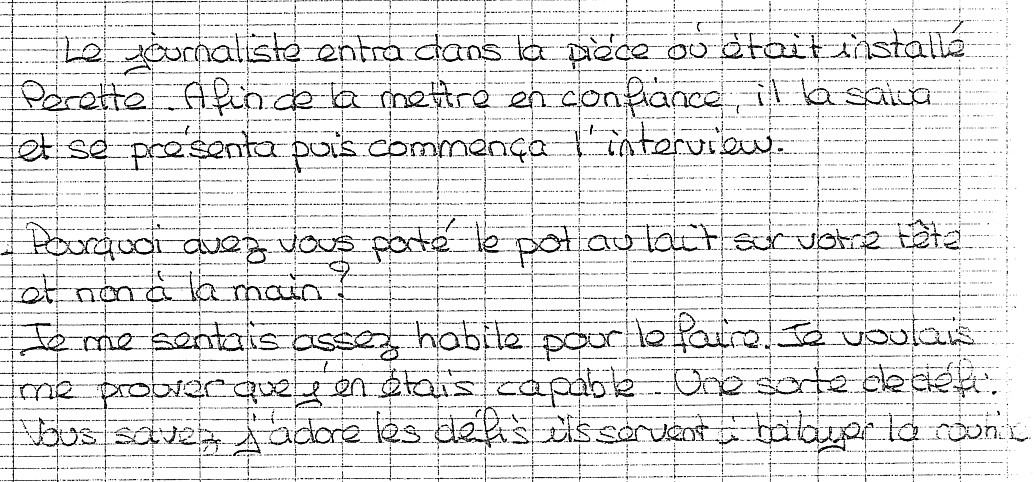 Le journaliste entra dans la pièce où était installé
Perette. Afin de la mettre en confiance, il la salua
et se présenta puis commença l'interview.
- Pourquoi avez vous porté le pot au lait sur votre tête
et non à la main?
Je me sentais assez habile pour le faire. Je voulais
me prouver que j'en étais capable. Une sorte de défi.
Vous savez j'adore les défis ils servent à balayer la